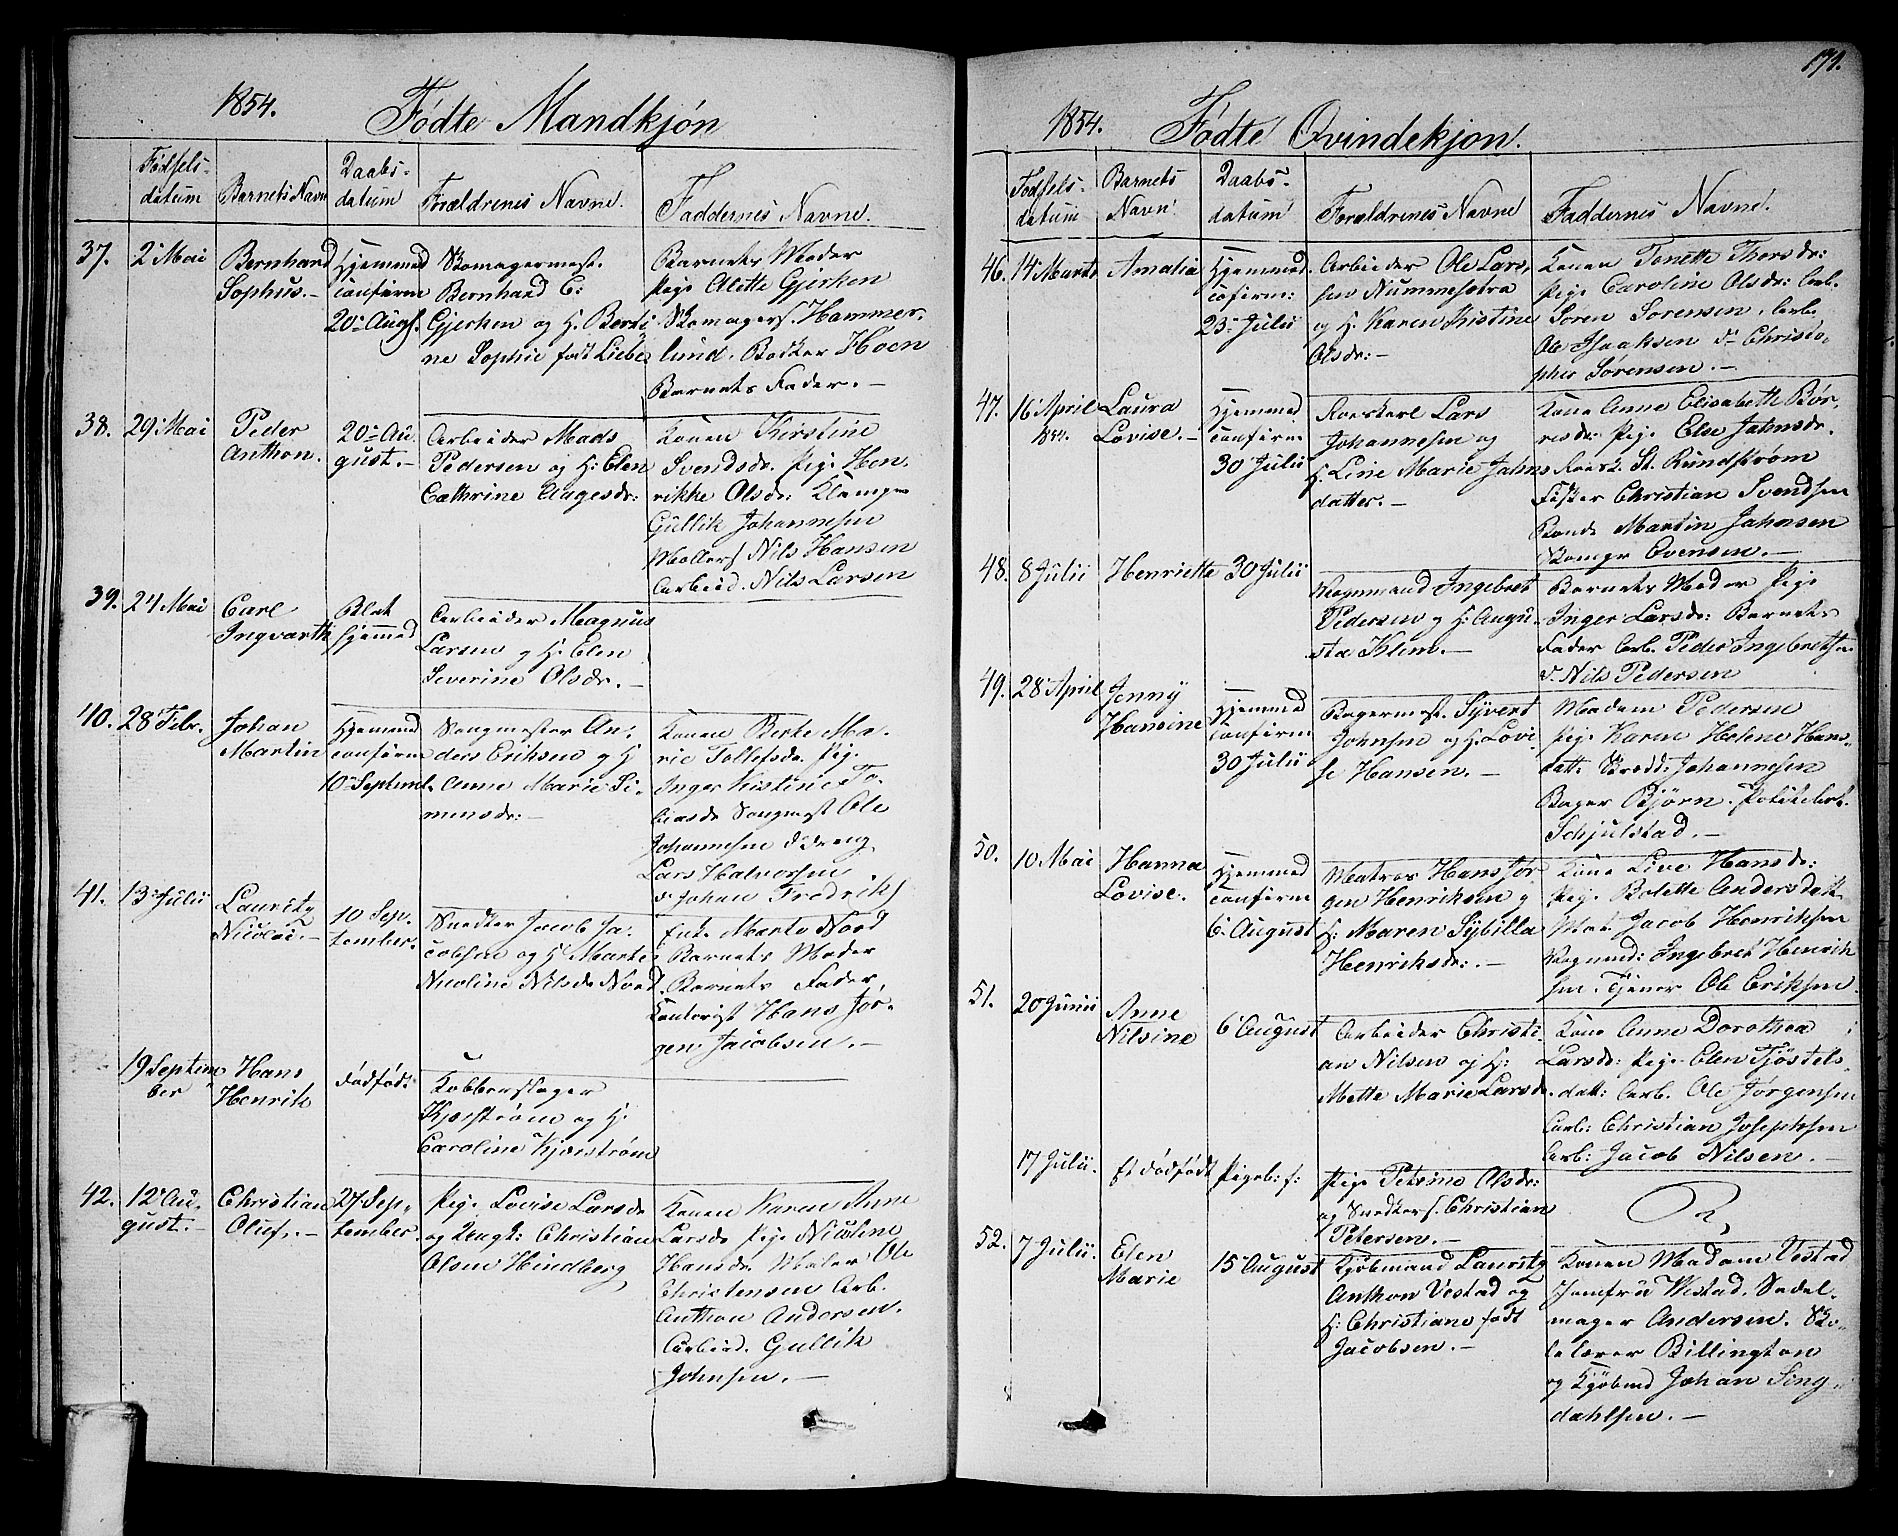 1854.
Fødte Mandkjøn
Fødsels-
datum
Barnets Navn
Daabs-
datum
Forældrenes Navne.
Faddernes Navne.
37.
2 Mai
Bernhard
Sophus.-
Hjemmed
confirm
20 Augs.
Skomagermest.
Bernhard E:
Gjerken og H. Berti
ne Sophie født Liebe
Barnets Moder
Pige Alette Gjerken
Skomagers. Hammer-
lund. Bødker Hoen
Barnets Fader.-
38.
29 Mai
Peder
Anthon.
20 Au-
gust.-
Arbeider Mads
Pedersen og H: Elen
Cathrine Aagesdr:
Konen Kirstine
Svendsdr. Pige Hen-
rikke Olsdr:
Gullik Johannesen
Møllers. Nils Hansen
Arbeid. Nils Larsen
39.
24 Mai
Carl
Ingvarth
Blot
hjemmed
Arbeider Magnus
Larsen og H: Elen
Severine Olsdr.-
40.
28 Febr.
Johan
Martin
Hjemmed
confirm
10 Septembr.
Saugmester An-
ders Eriksen og H
Anne Marie Si-
mensdr:-
Konen Berte Ma-
rie Tollefsdr. Pig.
Inger Kistine To-
biasdr Saugmest Ole
Johannesen
Lars Halvorsen
& Johan Fredriks
41.
13 Julii
Lauritz
Nicolai.-
10 Sep-
tember.
Snedker Jacob Ja-
cobsen og H Marte
Nicoline Nilsdr Nord
Enke Marte Nord
Barnets Moder
Barnets Fader,
Contorist Hans Jør-
gen Jacobsen.-
19 Septem
ber
Hans
Henrik
dødfødt
Kobberslager
Kjæstrøm og H.
Caroline Kjæstrøm
42.
12 Au-
gust.-
Christian
Oluf.-
27 Sep-
tember.
Pige Lovise Larsdr
og Ungk: Christian
Olsen Hindberg
Konen Karen Anne
Larsdr Pige Nicoline
Hansdr. Maler Ole
Christensen Arb.
Anthon Andersen.
Arbeid. Gullik
Johnsen.-
171.
1854.
Fødte Qvindekjøn.
Fødsels-
datum
Barnets
Navn
Daabs-
datum
Forældrenes Navne
Faddernes Navne.
46.
14 Marts
Amalia
Hjemmed
cofirm:
23 Julii
Arbeider Ole Lars-
sen Nummesetra
og H. Karen Kistine
Olsdr:-
Konen Tonette Thorsdr:
Pige Caroline Olsdr: Arb.
Søren Sørensen. Arb.
Ole Isaksen & Christo-
pher Sørensen.-
47.
16 April
1854.
Laura
Lovise.-
Hjemmed
confirm
30 Julii
Roerskarl Lars
Johannesen og
H. Line Marie Jahns
datter.-
Kone Anne Elisabeth Bør-
resdr: Pige Else Jahnsdr.
Roersk. St. Rundstrøm
Fisker Christian Svendsen
Bonde Martin Jahnsen
Evensen.-
48.
8 Julii
Henriette
30 Julii
Vognmand Ingebret
Pedersen og H: Augu-
sta Klem.-
Barnets Moder Pige
Inger Larsdr: Barnets
Fader Arb. Peder Ingebretsen
& Nils Pedersen
49.
28 April
Jenny
Hansine
Hjemmed
confirm
30 Julii
Bagermest. Syvert
Johnsen og H. Lovi-
se Hansen.-
Madam Pedersen
Pige Karen Helene Hans-
datt. Skredd. Johannesen
Bager Bjørn. Politibet.
Schjulstad.-
50.
10 Mai
Hanna
Lovise.
Hjemmed
confirm
6 August
Matros Hans Jør
gen Henriksen og
H: Maren Sybilla
Henriksdr:.-
Kone Live Hansdr:
Pige Bolette Andersdatt
Mat. Jacob Henriksen
Vognmd: Ingebret Henrik
sen. Tjener Ole Eriksen
51.
20 Junii
Anne
Nilsine
6 August
Arbeider Christi-
an Nilsen og H:
Mette Marie Larsdr.
Kone Anne Dorothea
Larsdr: Pige Elen Tjøstels-
datt: Arb. Ole Jørgensen
Arb: Christian Josephsen
Arb: Jacob Nilsen.-
17 Julii.
Et dødfødt
Pigeb:f:
Pige Petrine Olsdr:
og Snedkers. Christian
Petersen.-
52.
7 Julii.
Elen
Marie
15 August
Kjøbmand Lauritz
Anthon Vestad og
H: Christiane født
Jacobsen.-
Konen Madam Vestad
Jomfru Westad. Sadel-
mager Andersen. Sko-
lelærer Billington
og Kjøbmd Johan Ling-
dahlsen.-